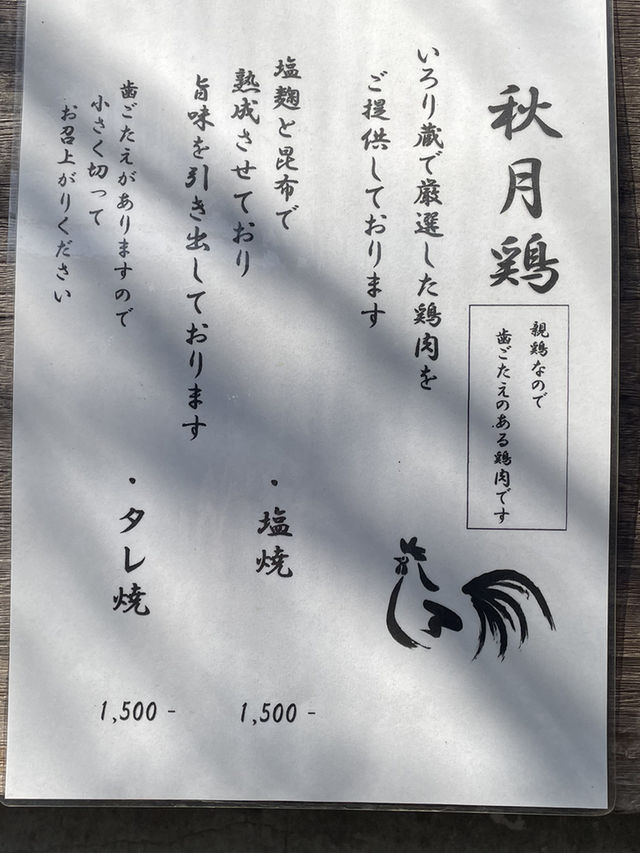 秋月鶏
親鶏なので
歯ごたえのある鶏肉です
いろり蔵で厳選した鶏肉を
ご提供しております
塩麹と昆布で
熟成させており
旨味を引き出しております
歯ごたえがありますので
小さく切って
お召上がりください
・塩焼 1,500-
・タレ焼 1,500-